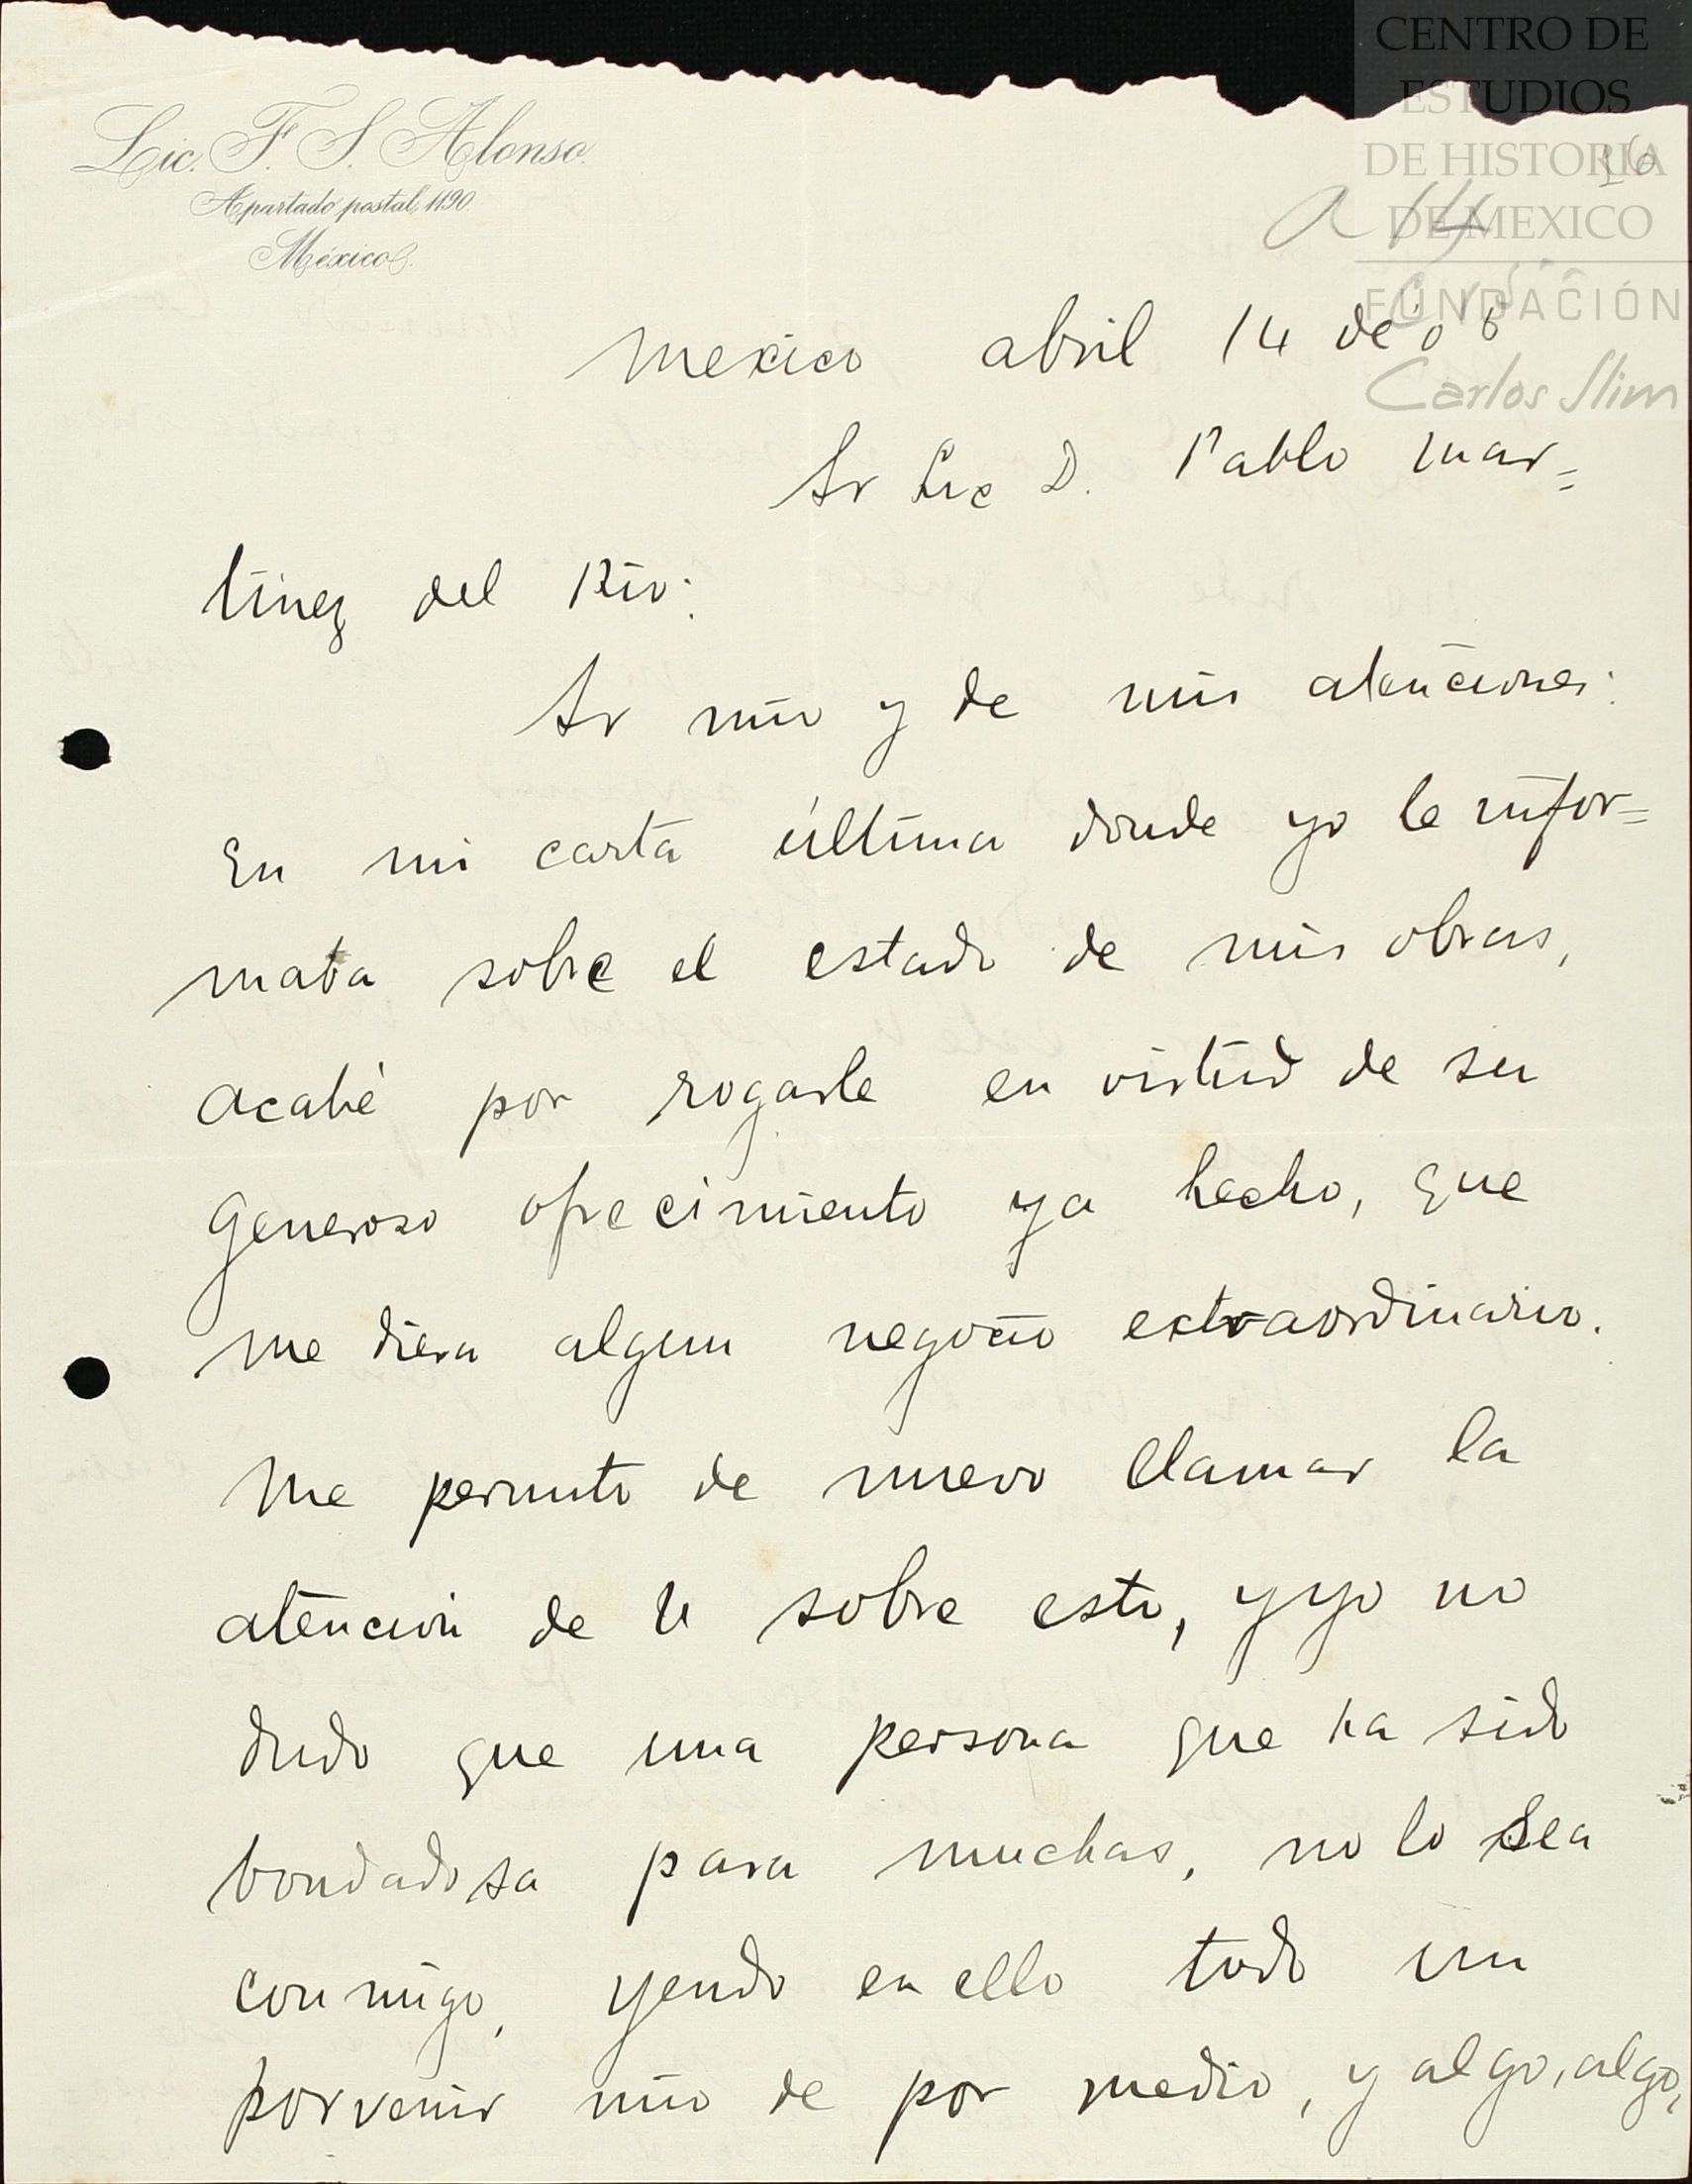 CENTRO DE
ESTUDIOS
DE HISTORIA
DE MEXICO
FUNDACIÓN
Carlos Slim
Lic. F. S. Alonso.
Apartado postal, 1190.
México.
16
a 14
Mexico abril 14 de 06
Sr Lic D. Pablo Mar=
tinez del Rio:
Sr mio y de mis atenciones:
En mi carta última donde yo le infor=
maba sobre el estado de mis obras,
acabé por rogarle en virtud de su
generoso ofrecimiento ya hecho, que
me diera algun negocio extraordinario.
Me permito de nuevo llamar la
atención de U sobre esto, y yo no
dudo que una persona que ha sido
bondadosa para muchas, no lo sea
conmigo, yendo en ello todo un
porvenir mio de por medio, y algo, algo,